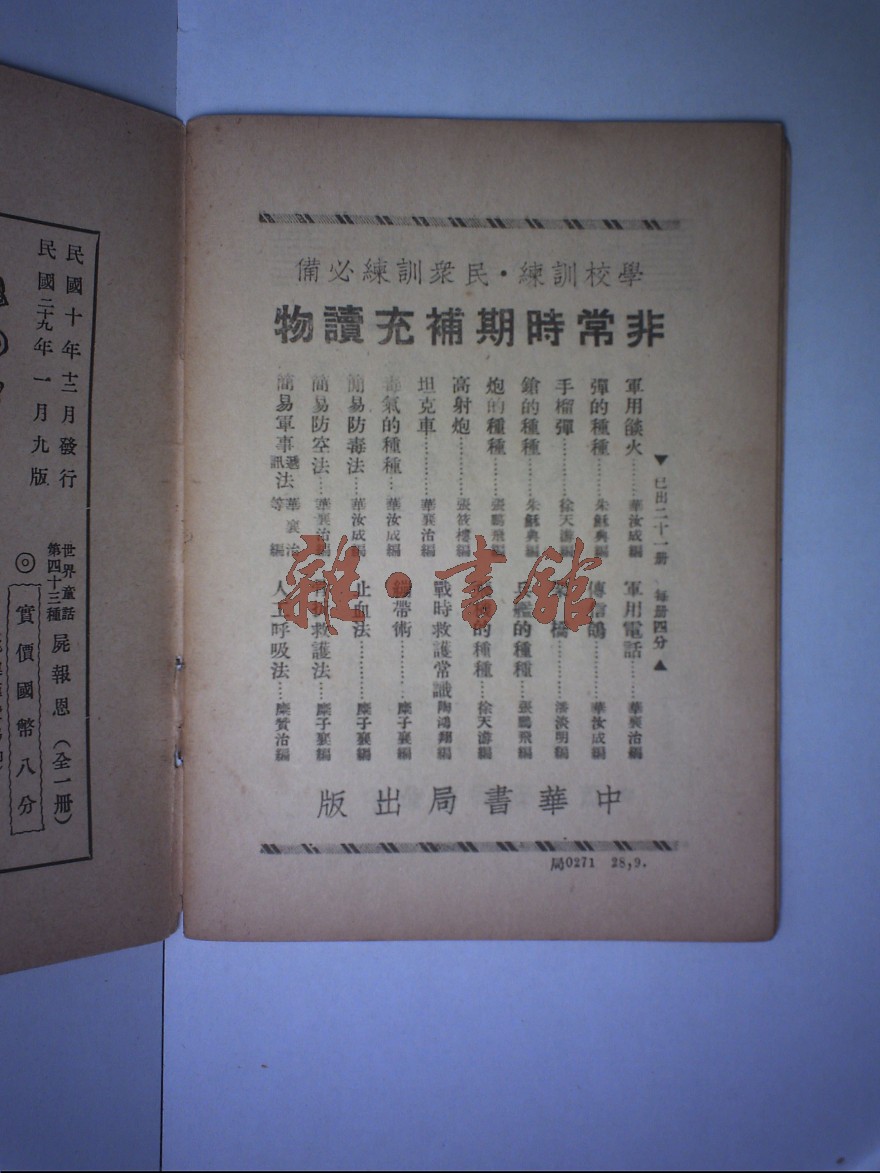 學校訓練・民衆訓練必備
非常時期補充讀物
▼已出二十一册 每册四分▲
軍用燄火……華汝成編
彈的種種……朱穌典編
手榴彈……徐天游編
鎗的種種……朱穌典編
炮的種種……張鵬飛編
高射炮……張筱樓編
坦克車……華襄治編
毒氣的種種……華汝成編
簡易防毒法……華汝成編
簡易防空法……華襄治編
簡易軍事通訊法……華襄治等編
軍用電話……華襄治編
傳信鴿……華汝成編
橋……潘淡明編
艦的種種……張鵬飛編
的種種……徐天游編
戰時救護常識……陶鴻翔編
繃帶術……糜子襄編
止血法……糜子襄編
救護法……糜子襄編
人工呼吸法……糜贊治編
中華書局出版
局0271 28,9.
雜・書館
民國十年十二月發行
民國二十九年一月九版
世界童話第四十三種
屍報恩(全一册)
◎實價國幣八分